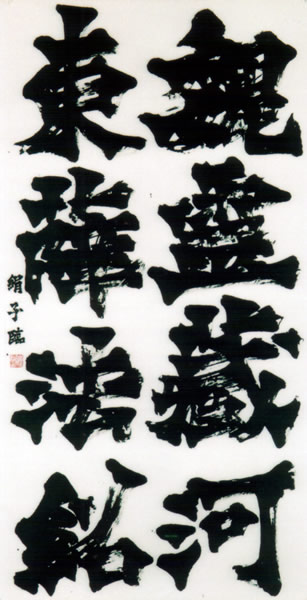 魏靈藏河
東薛法紹
絹子臨